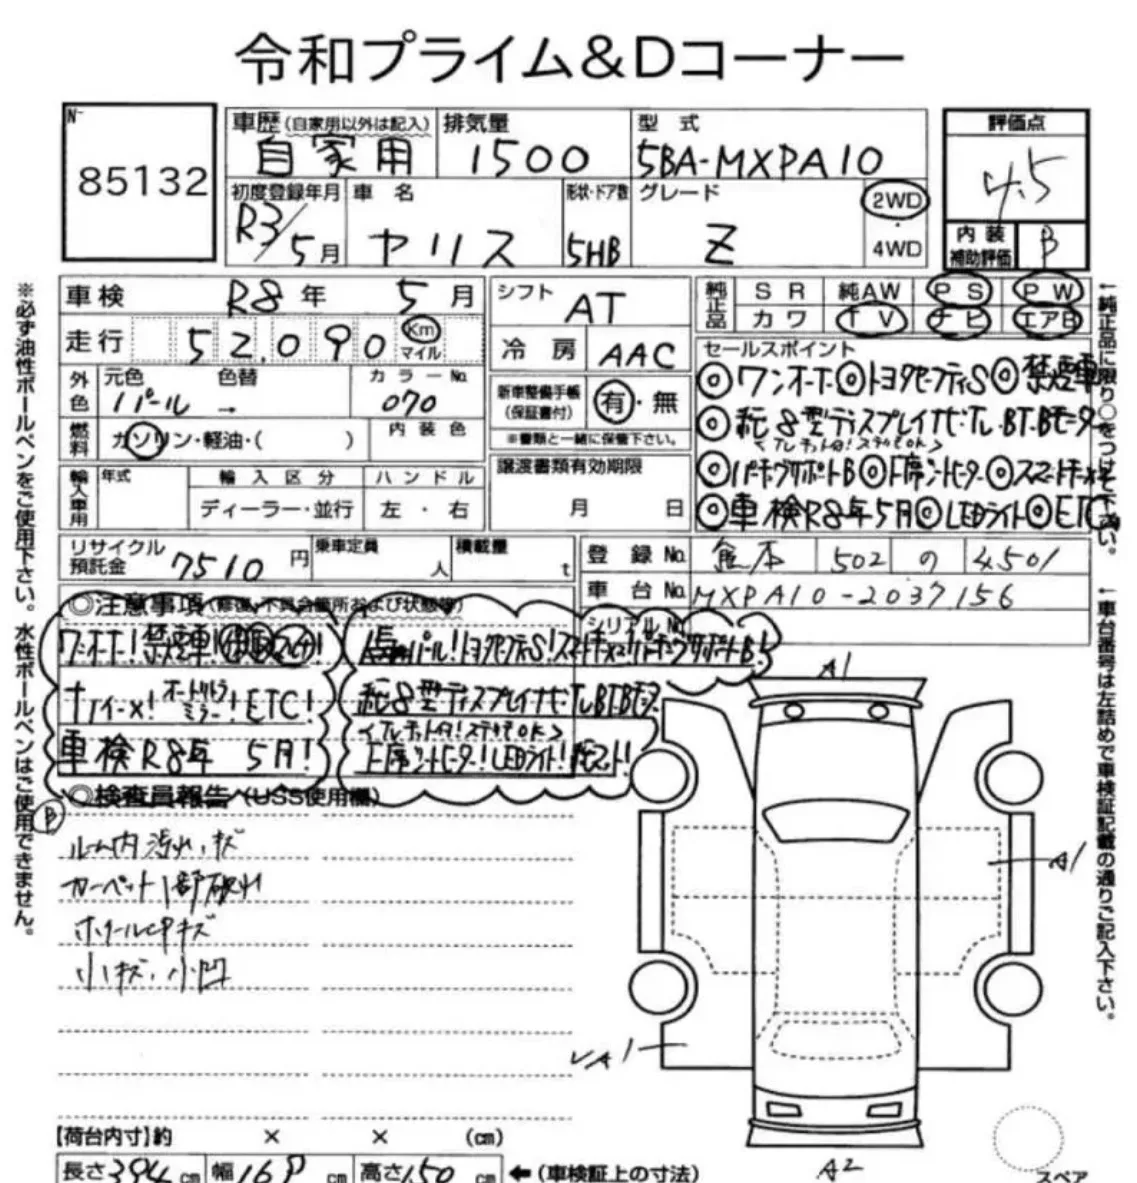 令和プライム&Dコーナー
No
85132
車歴 (自家用以外は記入)
自家用
排気量
1500
型式
5BA-MXPA10
評価点
4.5
初度登録年月
R3/5月
車名
ヤリス
形状・ドア数
5HB
グレード
Z
2WD
4WD
内装
補助評価
B
車検 R8年 5月
走行 52,090 Km
マイル
シフト
AT
冷房 AAC
純正品
SR 純AW PS PW
カワ TV ナビ エアB
外色
元色 色替
パール →
カラーNo.
070
燃料
ガソリン・軽油・( )
内装色
新車整備手帳
(保証書付)
有・無
※書類と一緒に保管下さい。
セールスポイント
◎ワンオーナー◎トヨタセーフティS◎禁煙車
◎純8型ディスプレイナビ・TV・BT・Bモニター
◎パーキングサポートB◎シートヒーター◎スマートキー
◎車検R8年5月◎LEDライト◎ETC
輸入車用
年式
輸入区分
ディーラー・並行
ハンドル
左・右
譲渡書類有効期限
月 日
リサイクル
預託金
7510円
乗車定員
人
積載量
t
登録No. 熊本 502 の 4501
車台No. MXPA10-2037156
シリアルNo
◎注意事項(修復、不具合箇所および状態等)
ワンオーナー!禁煙車!
パール!トヨタセーフティS!パーキングサポートB!
ETC!
純8型ディスプレイナビ・
車検R8年 5月!
シートヒーター!LEDライト!
◎検査員報告(USS使用欄)
B
ルーム内汚れ、キズ
カーペット1部破れ
ホイールCPキズ
小キズ、小凹
A1
A1
A1
A2
【荷台内寸】約 × × (cm)
長さ394cm 幅169cm 高さ150cm ←(車検証上の寸法)
スペア
※必ず油性ボールペンをご使用下さい。水性ボールペンはご使用できません。
←純正品に限り○をつけて下さい。
←車台番号は左詰めで車検証記載の通りご記入下さい。